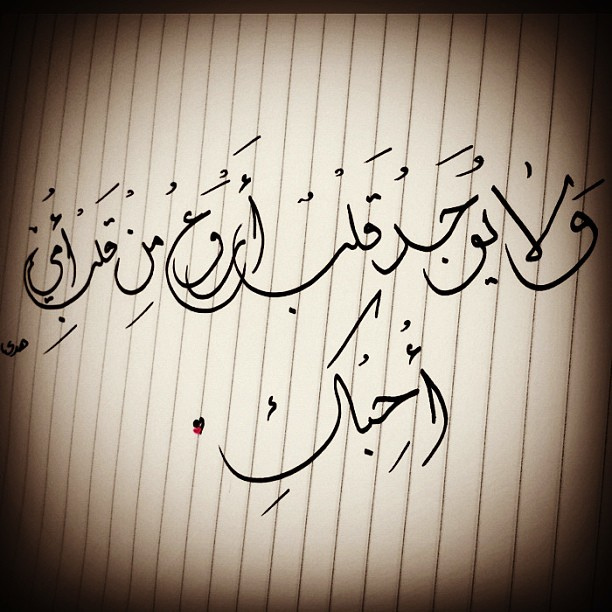 ولا يوجد قلب أروع من قلب أمي
أحبك
هدى